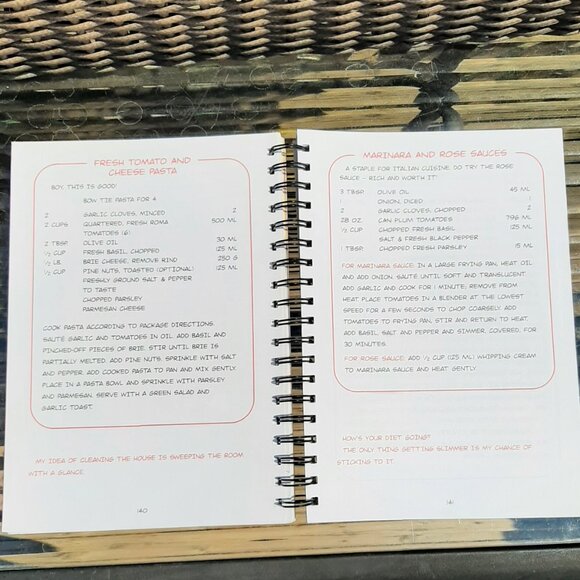 FRESH TOMATO AND
CHEESE PASTA
BOY, THIS IS GOOD!
BOW TIE PASTA FOR 4
2 GARLIC CLOVES, MINCED 2
2 CUPS QUARTERED, FRESH ROMA 500 ML
TOMATOES (6)
2 TBSP OLIVE OIL 30 ML
½ CUP FRESH BASIL, CHOPPED 125 ML
½ LB. BRIE CHEESE, REMOVE RIND 250 G
½ CUP PINE NUTS, TOASTED (OPTIONAL) 125 ML
FRESHLY GROUND SALT & PEPPER
TO TASTE
CHOPPED PARSLEY
PARMESAN CHEESE
COOK PASTA ACCORDING TO PACKAGE DIRECTIONS.
SAUTÉ GARLIC AND TOMATOES IN OIL. ADD BASIL AND
PINCHED-OFF PIECES OF BRIE. STIR UNTIL BRIE IS
PARTIALLY MELTED. ADD PINE NUTS, SPRINKLE WITH SALT
AND PEPPER. ADD COOKED PASTA TO PAN AND MIX GENTLY.
PLACE IN A PASTA BOWL AND SPRINKLE WITH PARSLEY
AND PARMESAN. SERVE WITH A GREEN SALAD AND
GARLIC TOAST.
MY IDEA OF CLEANING THE HOUSE IS SWEEPING THE ROOM
WITH A GLANCE.
140
MARINARA AND ROSE SAUCES
A STAPLE FOR ITALIAN CUISINE. DO TRY THE ROSE
SAUCE - RICH AND WORTH IT!
3 TBSP OLIVE OIL 45 ML
1 ONION, DICED 1
2 GARLIC CLOVES, CHOPPED 2
28 OZ. CAN PLUM TOMATOES 796 ML
½ CUP CHOPPED FRESH BASIL 125 ML
SALT & FRESH BLACK PEPPER
1 TBSP CHOPPED FRESH PARSLEY 15 ML
FOR MARINARA SAUCE: IN A LARGE FRYING PAN, HEAT OIL
AND ADD ONION. SAUTÉ UNTIL SOFT AND TRANSLUCENT.
ADD GARLIC AND COOK FOR 1 MINUTE. REMOVE FROM
HEAT. PLACE TOMATOES IN A BLENDER AT THE LOWEST
SPEED FOR A FEW SECONDS TO CHOP COARSELY. ADD
TOMATOES TO FRYING PAN, STIR AND RETURN TO HEAT.
ADD BASIL, SALT, AND PEPPER AND SIMMER, COVERED, FOR
30 MINUTES.
FOR ROSE SAUCE: ADD ½ CUP (125 ML) WHIPPING CREAM
TO MARINARA SAUCE AND HEAT GENTLY.
HOW'S YOUR DIET GOING?
THE ONLY THING GETTING SLIMMER IS MY CHANCE OF
STICKING TO IT.
141